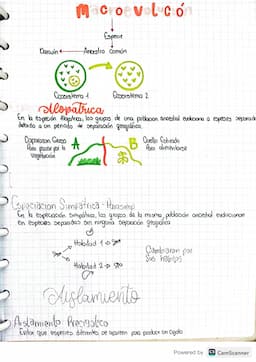 Macroevolución
Especie
Darwin Ancestro común
Ecosistema 1 Ecosistema 2
Alopatrica
En la especiación alopátrica, los grupos de una población ancestral evolucionan a especies separadas
debido a un periodo de separación geográfica.
Caparazon Grueso
Para pasar por la
vegetación
A B
Cuello Estirado
Para alimentarse
Especiacion Simpatrica -
En la especiación simpátrica, los grupos de la misma población ancestral evolucionan
en especies separadas sin ninguna separación Geográfica
Habitad 1
Habitad 2
Cambiaron por
Sus habitos
Aislamiento
Aislamiento Precigotico
Evitar que especies diferentes se apareen para producir un cigoto
Powered by CS CamScanner